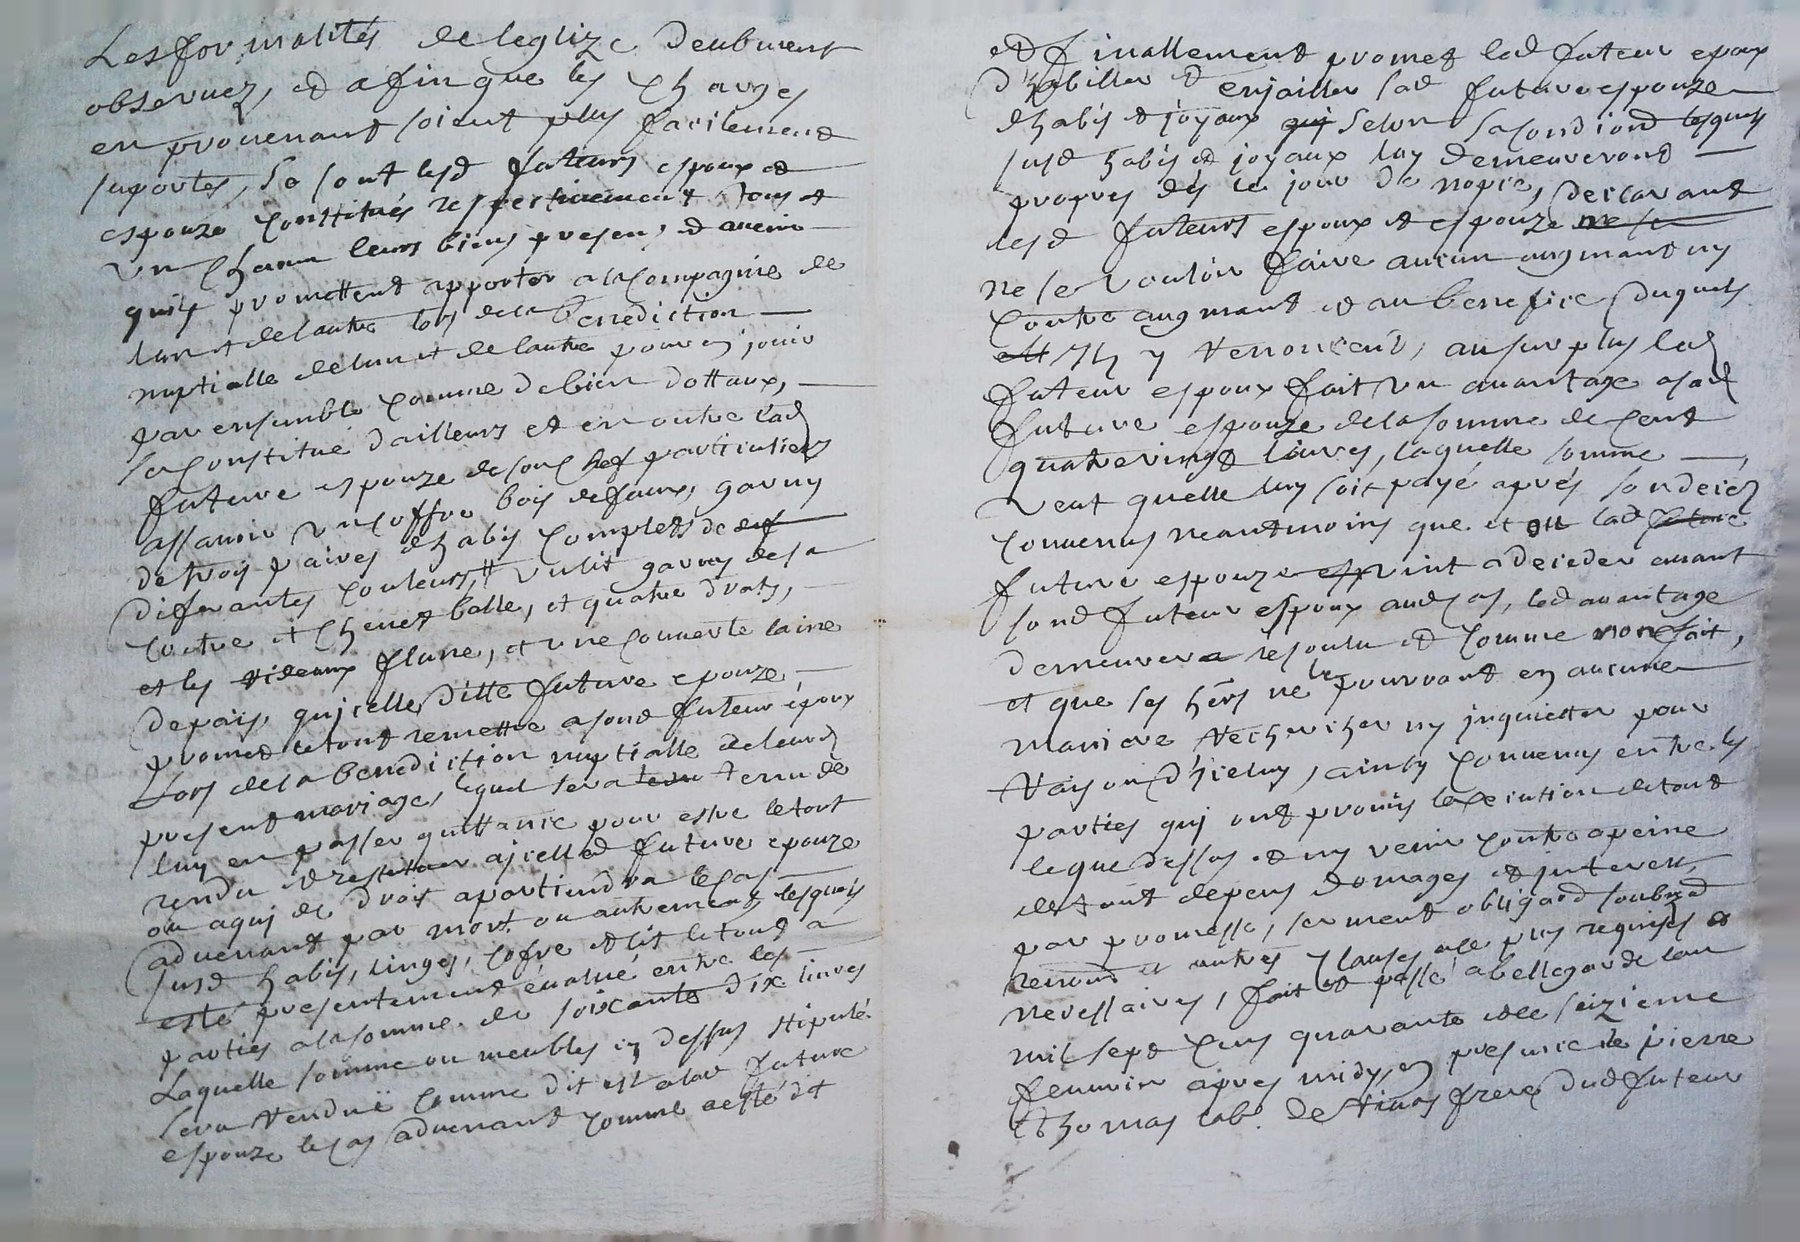 Les formalités de leglize deubment
observuez, et afin que les charges
en provenant soient plus facilement
suportes, se sont lesd futeurs espoux et
espouze constitués respectivement tous et
un chacun leurs biens presens et avenir
quils promettent apporter a la compagnie de
lun et de lautre lors de la benediction
nuptialle de lun et de lautre pour en jouir
par ensemble comme de bien dottaux,
sa constitué dailleurs et en outre lad
future espouze de son chef particulier
assavoir un coffre bois de faux, garny
de trois paires dhabis complets de
diferantes couleurs, un lit garny de sa
coutre et chevet balle, et quatre draps,
et les rideaux flane, et une couverte laine
de païs, qujcelle ditte future epouze
promet le tout remettre a sond futeur époux
Lors de la benediction nuptialle de leurd
present mariage, lequel sera tenu tenu de
luy en passer quittance pour estre le tout
rendu et restituer ajcelled future epouze
ou a quj de droit apartiendra le cas
advenant par mort ou autrement lesquels
susd habis, linges, cofre et lit le tout a
esté presentement évalué entre les
parties a la somme de soixante dix livres
Laquelle somme ou meubles cy dessus stipulé
sera renduë comme dit est a lad future
espouze le cas advenant comme a esté dit
et finallement promet led futeur epoux
dhabiller et enjailler sad future espouze
dhabis et joyaux quj selon sa condiond lesquels
susd habis et joyaux luy demeureront
propres dés le jour de nopce, declarant
lesd futeurs espoux et espouze ne se
ne se vouloir faire aucun augmant ny
contre augmant et au benefice duquels
ils y renoncent, au surplus led
futeur espoux fait un avantage a sad
future espouze de la somme de cent
quatre vingt livres, laquelle somme
veut quelle luy soit payé aprés son deces
convenus neantmoins que et ou lad future
future espouze vint a deceder avant
sond futeur espoux aud cas, led avantage
demeurera resoulu et comme non fait,
et que ses hers ne le pourront en aucune
maniere rechercher ny jnquietter pour
raison dhieluy, ainsy convenus entre les
parties quj ont promis lexecution de tout
le que dessus et ny venir contre a peine
de tout depens domages et jnterest,
par promesse, serment obligaod soubzd
renond et autres clauses a ce plus requises et
necessaires, fait et passé a bellegarde lan
mil sept cens quarante et le seizieme
fevrier apres midy, en presence de pierre
thomas lab. de frere dud futeur